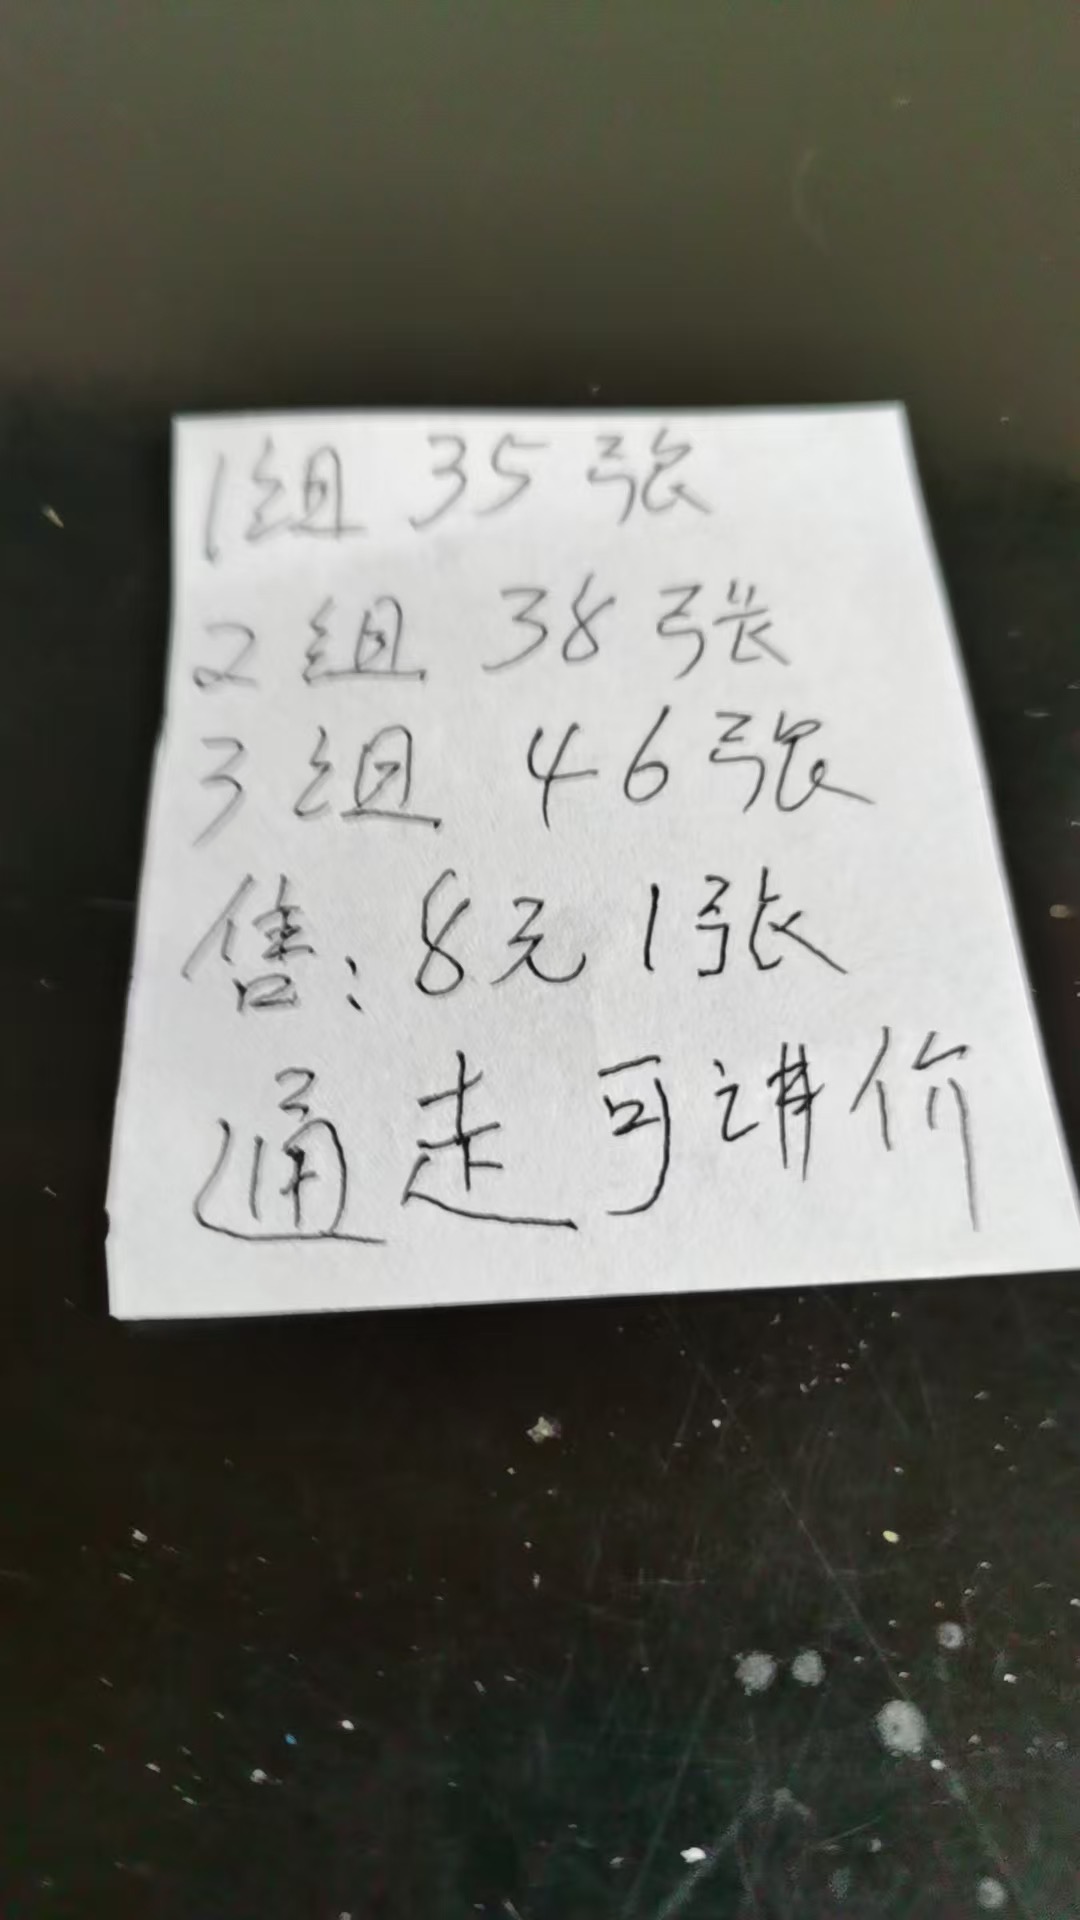 1组 35张
2组 38张
3组 46张
售:8元1张
通走可讲价